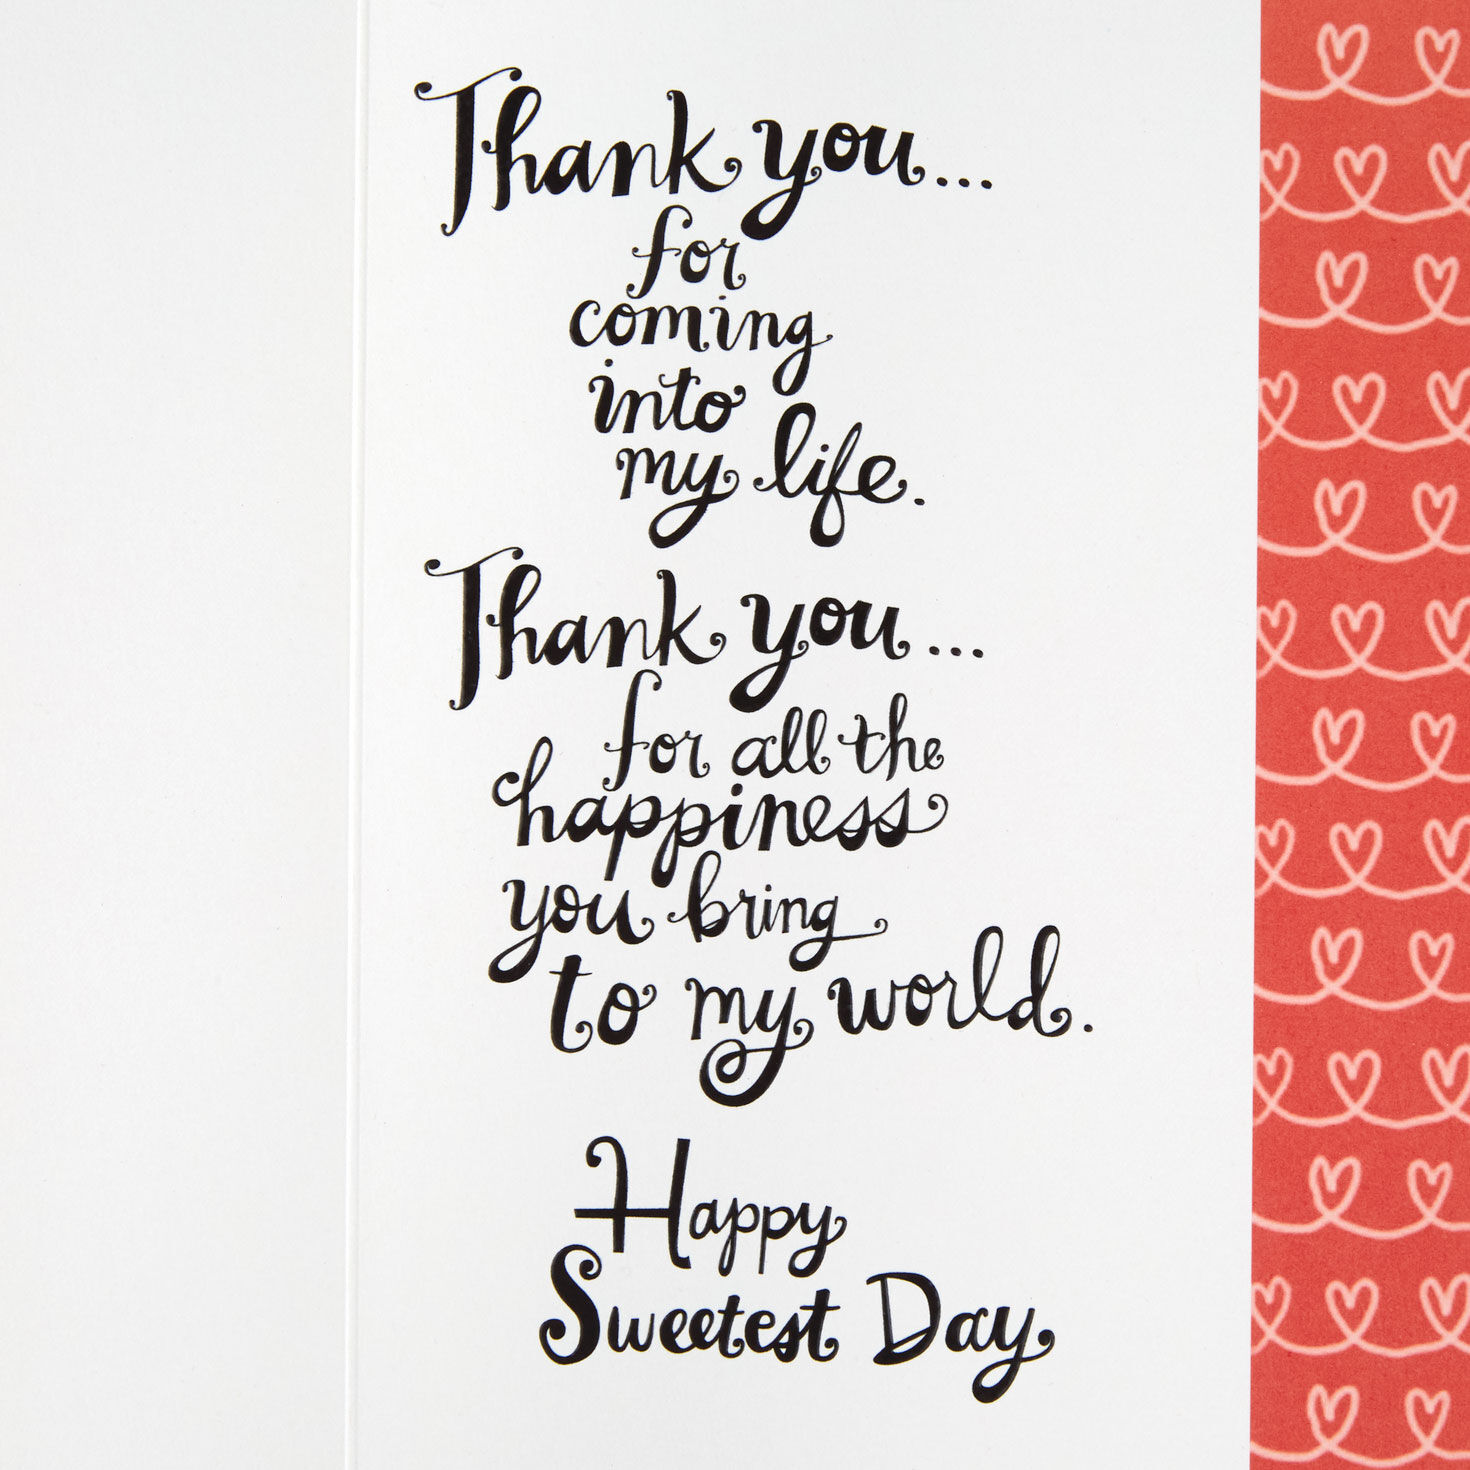 Thank you...
for
coming
into
my life.
Thank you...
for all the
happiness
you bring
to my world.
Happy
Sweetest Day